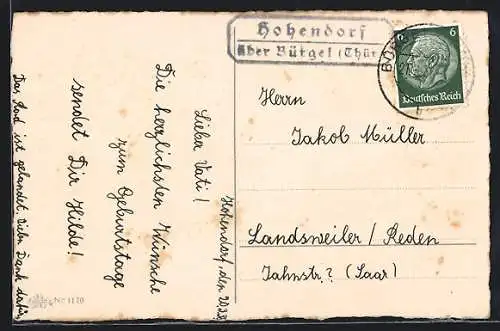 Hohendorf
über Bürgel (Thür
6
6
Deutsches Reich
BÜR
Herrn
Jakob Müller
Landsweiler / Reden
Jahnstr.? (Saar)
Hohendorf, den
Lieber Vati!
Die herzlichsten Wünsche
zum Geburtstage
sendet Dir Hilde!
Das Brot ist gelandet. Vielen Dank dafür
Nr. 1170